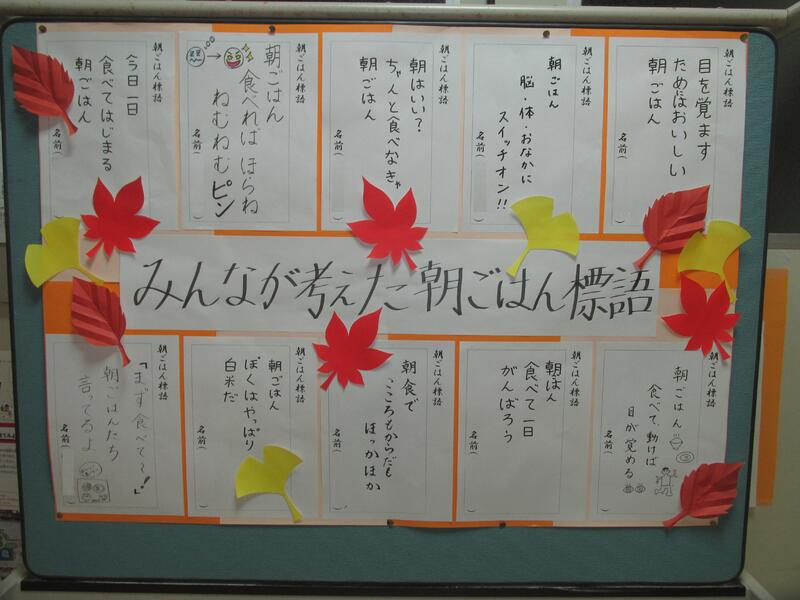 朝ごはん標語
目を覚ます
ためにはおいしい
朝ごはん
名前(
)
朝ごはん標語
朝ごはん
脳・体・おなかに
スイッチオン!!
名前(
)
朝ごはん標語
朝はいい?
ちゃんと食べなきゃ
朝ごはん
名前(
)
朝ごはん標語
朝ごはん
食べれば ほらね
ねむねむ ピン
名前(
)
朝ごはん標語
今日一日
食べてはじまる
朝ごはん
名前(
)
みんなが考えた朝ごはん標語
朝ごはん標語
朝ごはん
食べて、動けば
目が覚める
名前(
)
朝ごはん標語
食べて一日
がんばろう
名前(
)
朝ごはん標語
朝食で
こころもからだも
ほっかほか
名前(
)
朝ごはん標語
朝ごはん
ぼくはやっぱり
白米だ
名前(
)
朝ごはん標語
「まず食べて〜!」
朝ごはんたち
言ってるよ
名前(
)